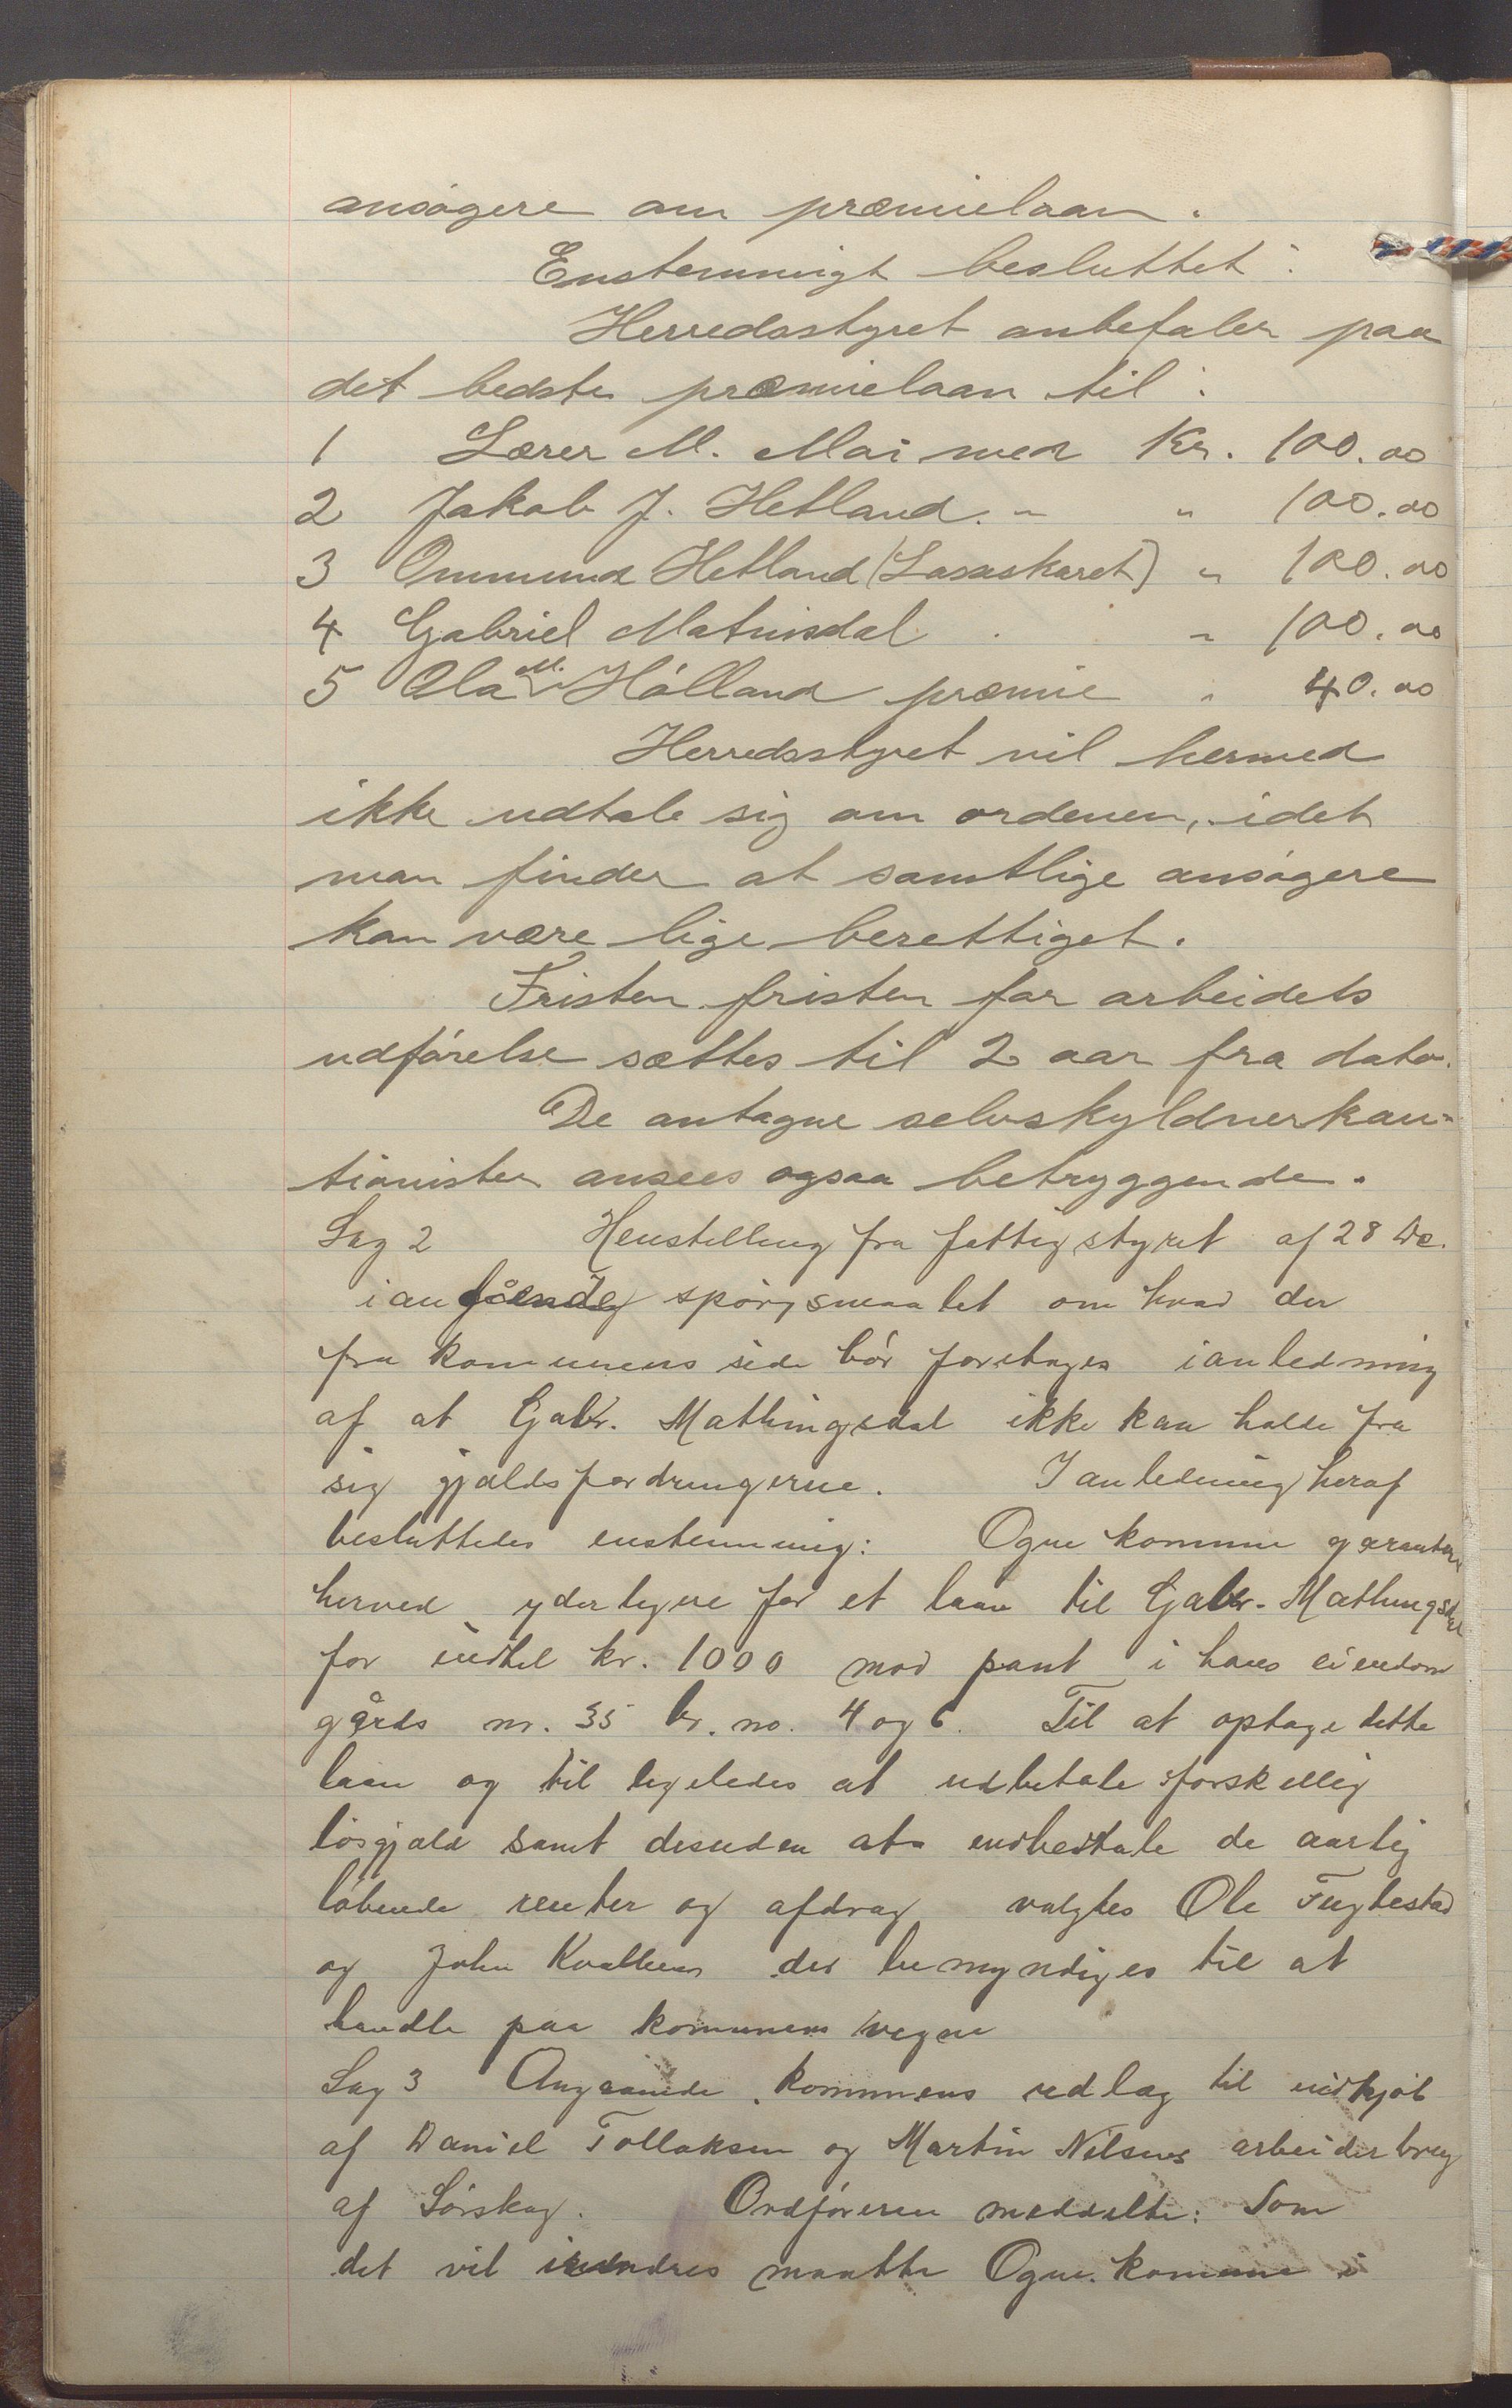 ansøgere om præmielaan.
Enstemmigt besluttet:
Herredsstyret anbefaler paa
det bedste præmielaan til:
1 Lærer M. Moi med Kr. 100.00
2 Jakob J. Hetland. " " 100.00
3 Ommund Hetland (Lasaskaret) " 100.00
4 Gabriel Matnisdal " 100.00
5 Ola M. Hølland præmie " 40.00
Herredsstyret vil hermed
ikke udtale sig om ordenen, idet
man finder at samtlige ansøgere
kan være lige berettiget.
Fristen fristen for arbeidets
udførelse sættes til 2 aar fra dato.
De antagne selvskyldnerkau-
tionister ansees ogsaa betryggende.
Sag 2 Henstilling fra fattigstyret af 28 De.
spørgsmaalet om hvad der
fra kommunens side bør foretages i anledning
af at Gabr. Mathingsdal ikke kan holde fra
sig gjældsfordringerne. I anledning heraf
besluttedes enstemmig: Ogne kommune garanterer
herved yderligere for et laan til Gabr. Mathingsdal
for indtil kr. 1000 mod pant i hans eiendom
gårds nr. 35 br. no. 4 og 6. Til at optage dette
laan og til ligeledes at udbetale forskellig
løsgjæld samt desuden at indbetale de aarlig
løbende renter og afdrag valgtes Ole Fuglestad
og John Kvalbein der bemyndiges til at
handle paa kommunens vegne
Sag 3 Angaaende kommunens udlæg til indkjøb
af Daniel Tollaksen og Martin Nilsens arbeiderbrug
af Sirskog. Ordføreren meddelte: Som
det vil erindres maatte Ogne kommune i